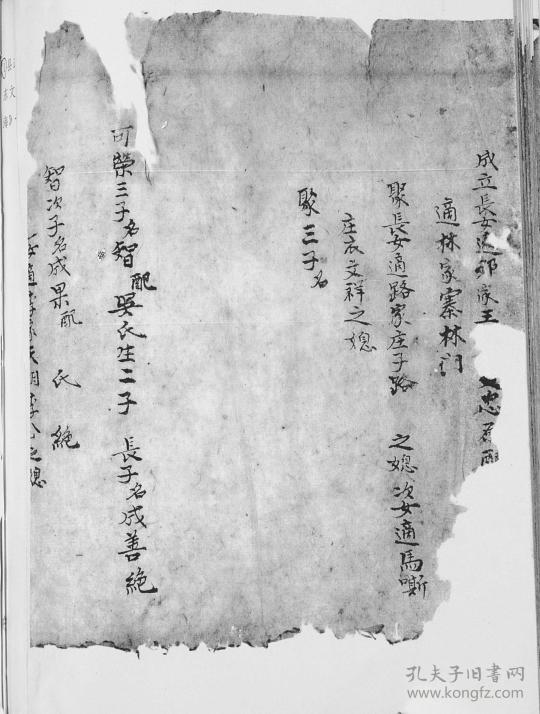 成立長女适郊家王
忠君配
適林家寨林門
聚長女適路家庄子路 之媳次女適馬嘶
庄衣文祥之媳
聚三子名
可榮三子名智配吳氏生二子 長子名成善絶
智次子名成果配 氏 絶
女適李家
之媳
孔夫子旧书网
www.kongfz.com